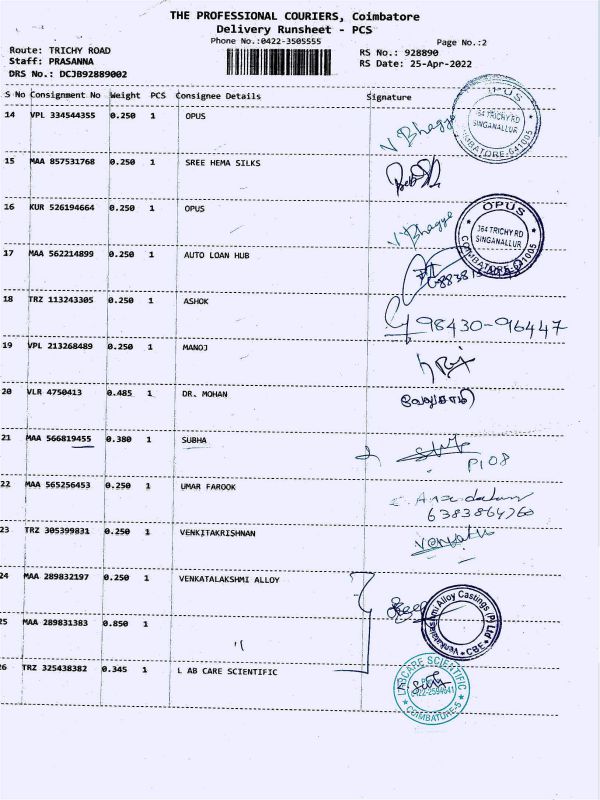 THE PROFESSIONAL COURIERS, Coimbatore
Delivery Runsheet - PCS
Phone No.:0422-3505555
Page No.:2
Route: TRICHY ROAD
RS No.: 928890
Staff: PRASANNA
RS Date: 25-Apr-2022
DRS No.: DCJB92889002
S No Consignment No Weight PCS Consignee Details Signature
14 VPL 334544355 0.250 1 OPUS V Bhagya
OPUS
364 TRICHY RD
SINGANALLUR
COIMBATORE-641005
15 MAA 857531768 0.250 1 SREE HEMA SILKS
16 KUR 526194664 0.250 1 OPUS V Bhagya
OPUS
364 TRICHY RD
SINGANALLUR
COIMBATORE-641005
17 MAA 562214899 0.250 1 AUTO LOAN HUB
18 TRZ 113243305 0.250 1 ASHOK 98430-96447
19 VPL 213268489 0.250 1 MANOJ
20 VLR 4750413 0.485 1 DR. MOHAN
21 MAA 566819455 0.380 1 SUBHA P108
22 MAA 565256453 0.250 1 UMAR FAROOK
6383864760
23 TRZ 305399831 0.250 1 VENKITAKRISHNAN
24 MAA 289832197 0.250 1 VENKATALAKSHMI ALLOY
Venkatalakshmi Alloy Castings (P) Ltd
CBE
25 MAA 289831383 0.850 1 "
26 TRZ 325438382 0.345 1 L AB CARE SCIENTIFIC
LABCARE SCIENTIFIC
COIMBATORE-5